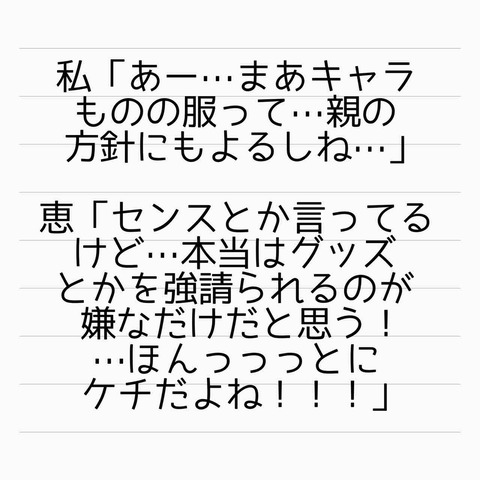 私「あー…まあキャラ
ものの服って…親の
方針にもよるしね…」
恵「センスとか言ってる
けど…本当はグッズ
とかを強請られるのが
嫌なだけだと思う！
…ほんっっっとに
ケチだよね！！！」